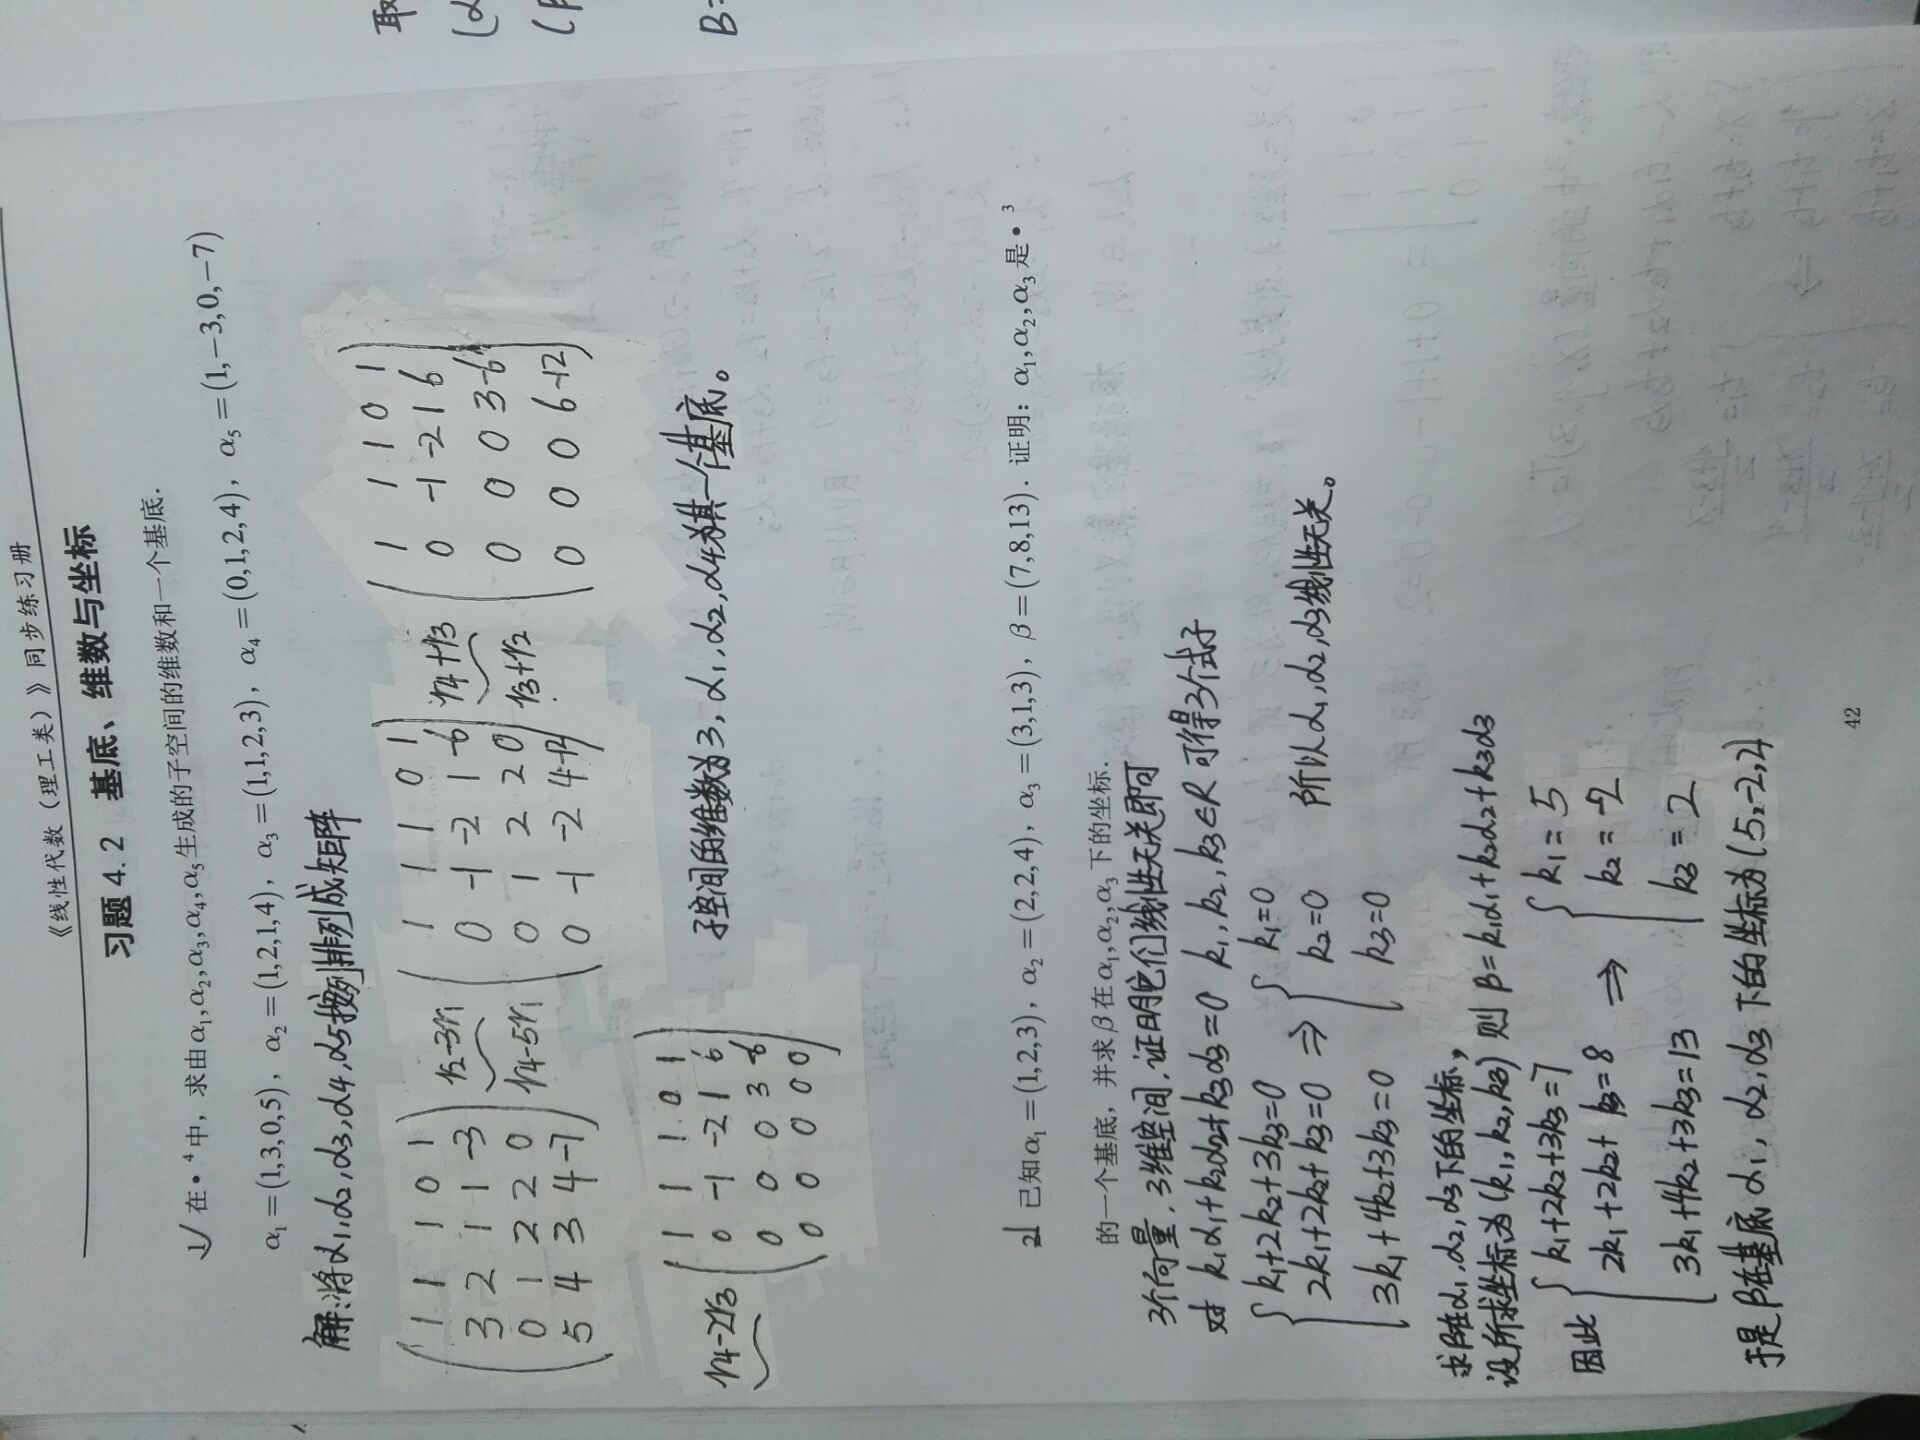 《线性代数（理工类）》同步练习册
习题 4.2 基底、维数与坐标
1 在•⁴中，求由α₁,α₂,α₃,α₄,α₅生成的子空间的维数和一个基底.
α₁=(1,3,0,5), α₂=(1,2,1,4), α₃=(1,1,2,3), α₄=(0,1,2,4), α₅=(1,-3,0,-7)
解:将α₁,α₂,α₃,α₄,α₅按列排列成矩阵
( 1 1 1 0 1 ) r2-3r1 ( 1 1 1 0 1 ) r4+r3 ( 1 1 1 0 1 )
3 2 1 1 -3 0 -1 -2 1 -6 0 -1 -2 1 6
0 1 2 2 0 r4-5r1 0 1 2 2 0 r3+r2 0 0 0 3 -6
5 4 3 4 -7 0 -1 -2 4 -12 0 0 0 6 -12
r4-2r3 ( 1 1 1 0 1 )
0 -1 -2 1 6
0 0 0 3 -6
0 0 0 0 0
子空间的维数为3, α₁,α₂,α₄为其一个基底。
2 已知α₁=(1,2,3), α₂=(2,2,4), α₃=(3,1,3), β=(7,8,13). 证明: α₁,α₂,α₃是•³
的一个基底，并求β在α₁,α₂,α₃下的坐标.
3个向量,3维空间,证明它们线性无关即可
对 k₁α₁+k₂α₂+k₃α₃=0 k₁,k₂,k₃∈R 可得3个式子
{ k₁+2k₂+3k₃=0 { k₁=0
2k₁+2k₂+k₃=0 ⇒ k₂=0 所以α₁,α₂,α₃线性无关。
3k₁+4k₂+3k₃=0 k₃=0
求β在α₁,α₂,α₃下的坐标,
设所求坐标为(k₁,k₂,k₃) 则 β=k₁α₁+k₂α₂+k₃α₃
因此 { k₁+2k₂+3k₃=7 { k₁=5
2k₁+2k₂+k₃=8 ⇒ k₂=-2
3k₁+4k₂+3k₃=13 k₃=2
于是β在基底α₁,α₂,α₃下的坐标为(5,-2,2)
42
取
B=